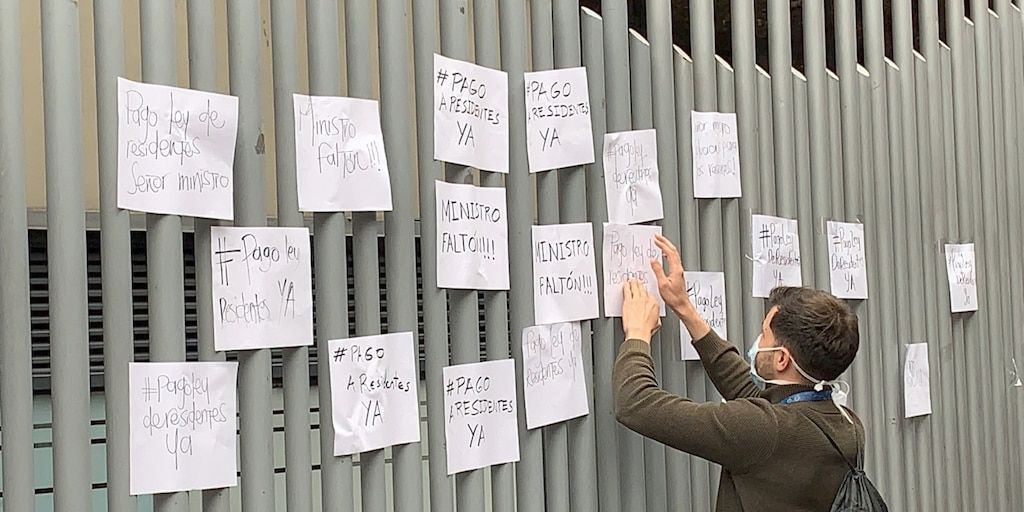 Pago ley de
residentes
Señor ministro
Ministro
faltón!!!
#PAGO
A RESIDENTES
YA
#PAGO
ARESIDENTES
YA
#Pagoley
de residentes
ya
para
MINISTRO
FALTÓN!!!!
MINISTRO
FALTÓN!!!
Pago ley de
residentes
#Pago ley
Residentes YA
#Pagoley
De Residentes
YA
#PagoLey
De Residentes
YA
#Pagoley
deresidentes
Ya
#PAGO
A RESIDENTES
YA
#PAGO
ARESIDENTES
YA
Pago ley de
Residentes ya
#Pagoley